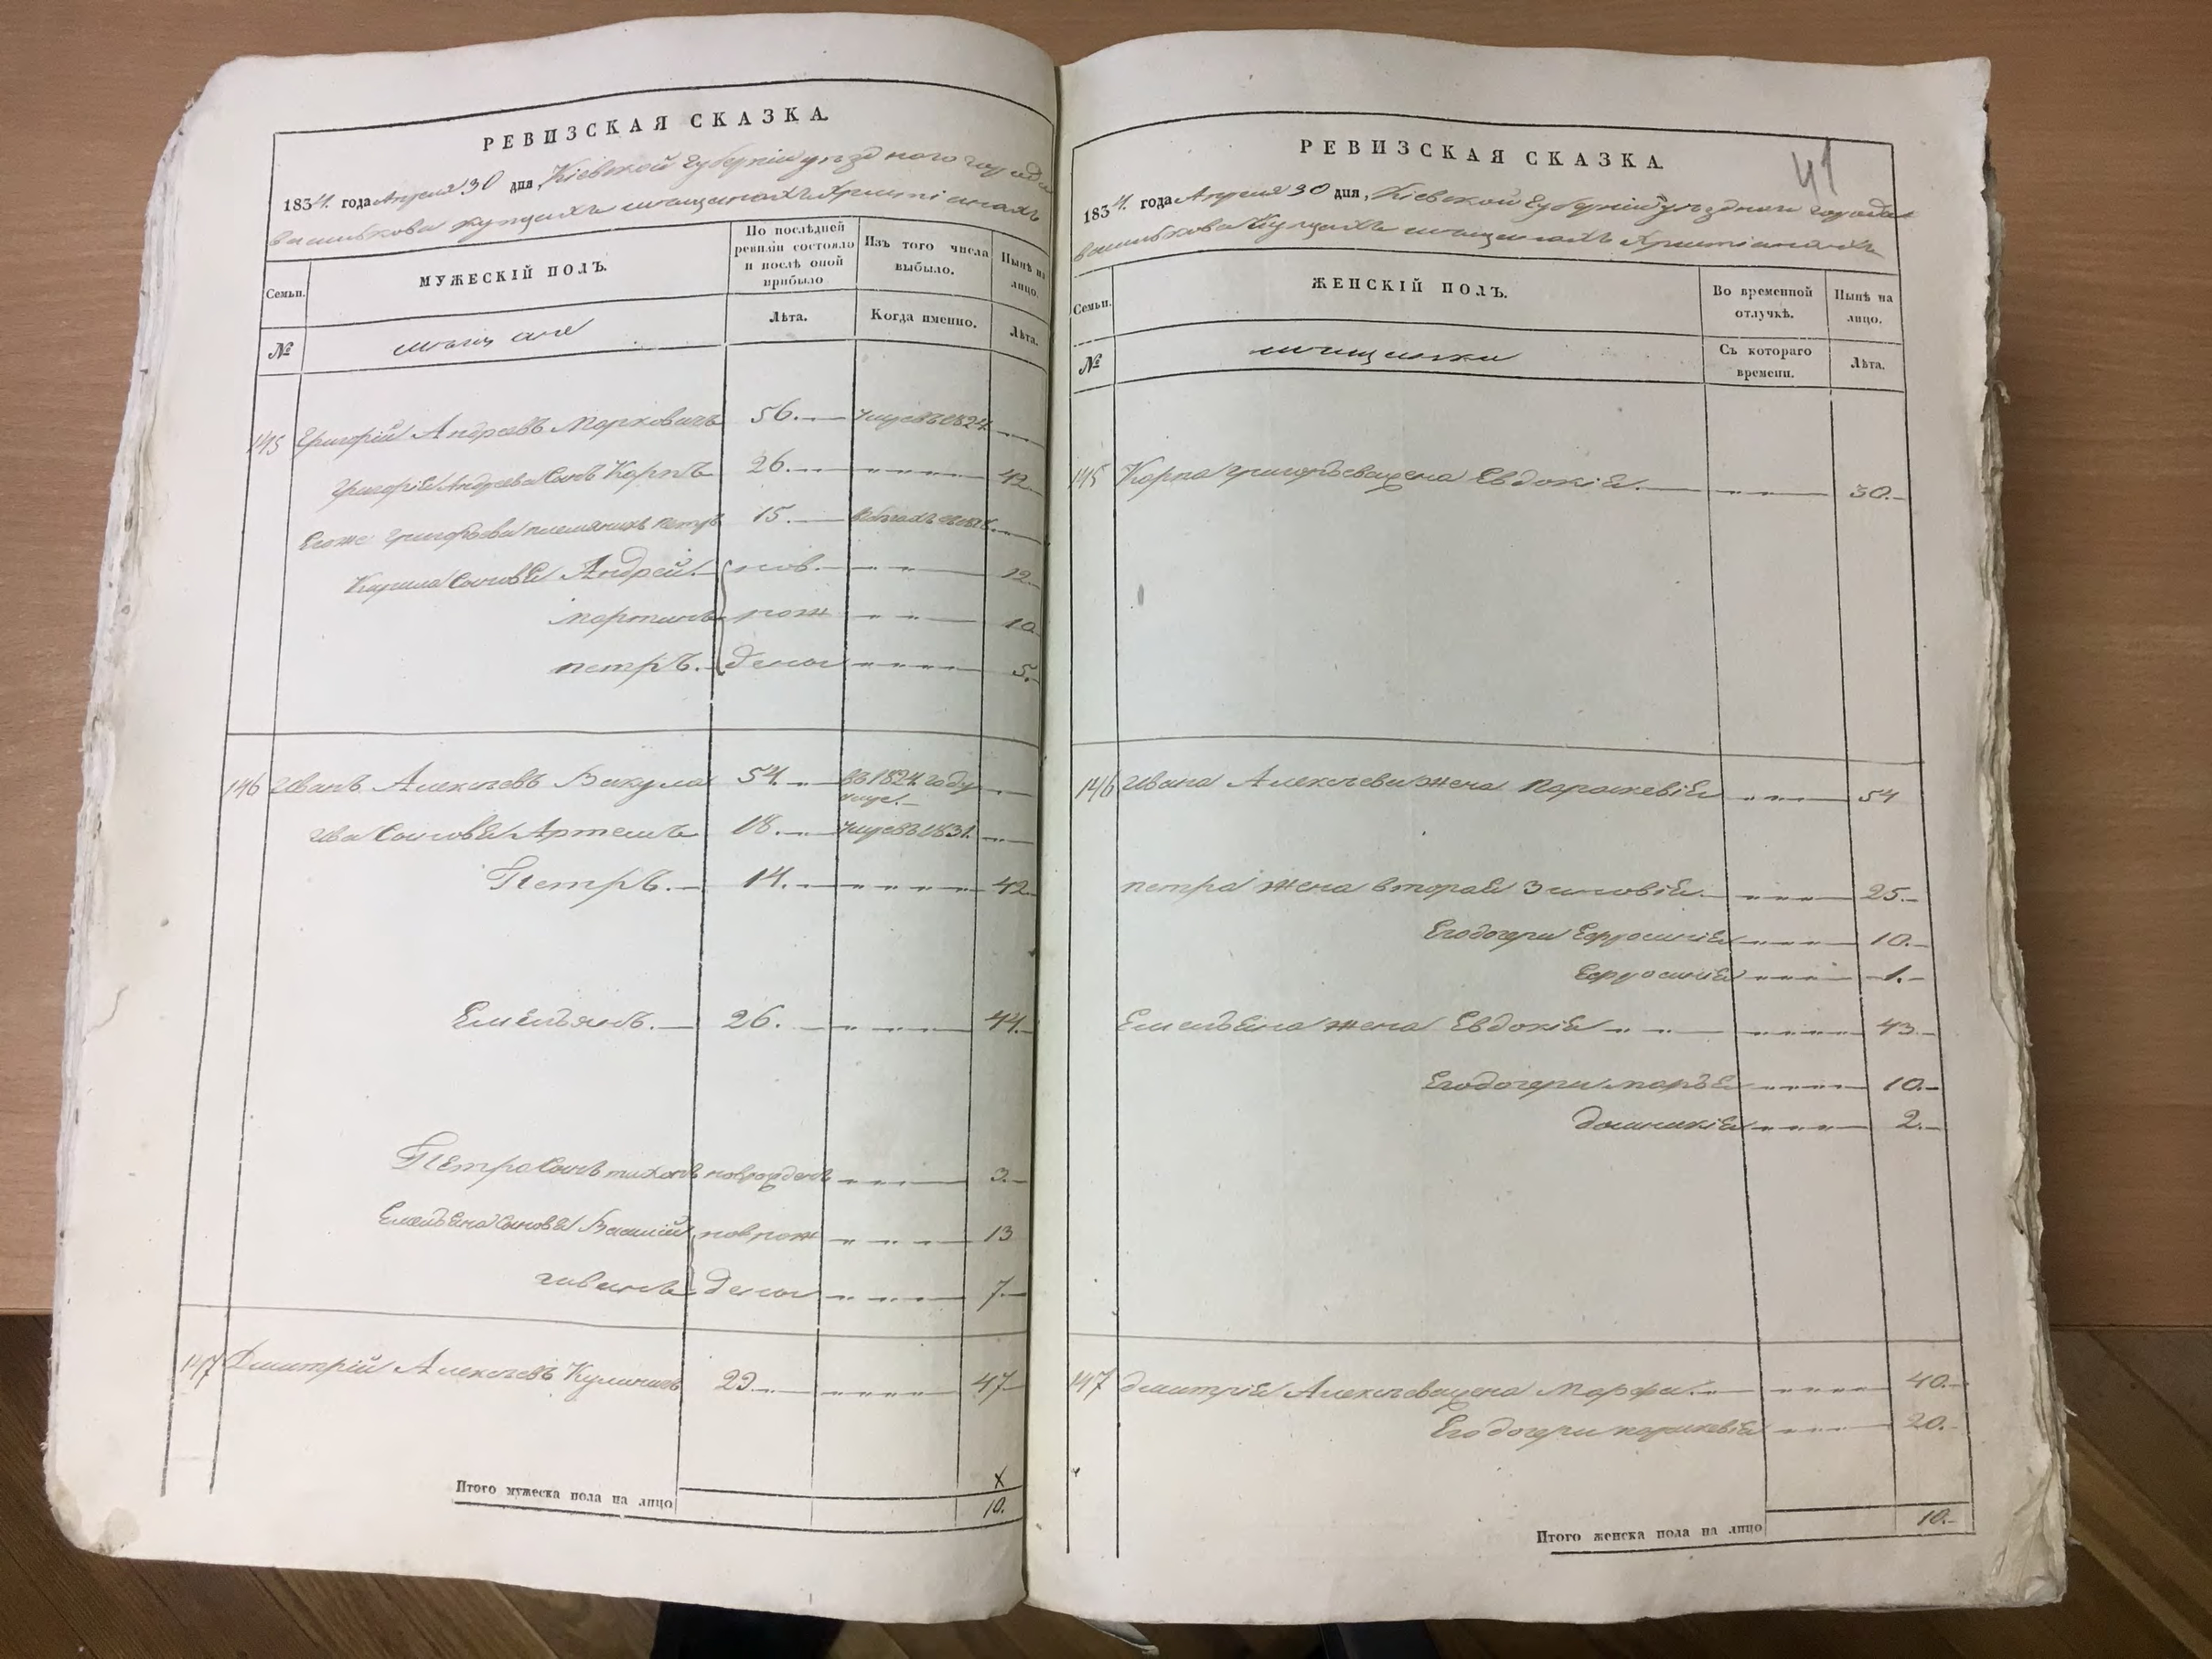 РЕВИЗСКАЯ СКАЗКА.
1834. года Апреля 30 дня, Кіевской Губерніи уѣзднаго города
василькова купцахъ мещанахъ Христіанахъ
Семьи.
МУЖЕСКІЙ ПОЛЪ.
По послѣдней ревизіи состояло и послѣ оной прибыло
Изъ того числа выбыло.
Нынѣ на лицо.
№
мещане
Лѣта.
Когда именно.
Лѣта.
145 Григорій Андреевъ Марковичъ 56. умре въ 1824
Григорія Андреева Сынъ Карпъ 26. 42
Егоже Григорьева племяникъ петръ 15.
Карпа Сыновья Андрей нов. 12.
мартинъ рож 10
петръ. дены 5.
146 Иванъ Алексѣевъ Вакула 54. въ 1824 году
умре.
Ива Сыновья Артемъ 18. умре въ 1831.
Петръ. 14. 42
Емельянъ. 26. 44.
Петра Сынъ тихонъ новорожденъ 3.
Емельяна Сыновья Василій нов рож 13
иванъ дены 7.
147 Дмитрій Алексѣевъ 29. 47
Итого мужеска пола на лицо
х
10.
РЕВИЗСКАЯ СКАЗКА.
41
1834. года Апреля 30 дня, Кіевской Губерніи уѣзднаго города
василькова Купцахъ мещанахъ Христіанахъ
Семьи.
ЖЕНСКІЙ ПОЛЪ.
Во временной отлучкѣ.
Нынѣ на лицо.
№
мещанки
Съ котораго времени.
Лѣта.
145 Карпа Григорьева жена Евдокія. 30.
146 Ивана Алексѣева жена Параскевія 54
петра жена вторая Зиновія 25.
Его дочери Ефросинія 10.
Ефросинія 1.
Емельяна жена Евдокія 43
Его дочери марья 10.
домникія 2.
147 дмитрія Алексѣева жена Марфа. 40.
Его дочери параскевія 20.
Итого женска пола на лицо
10.